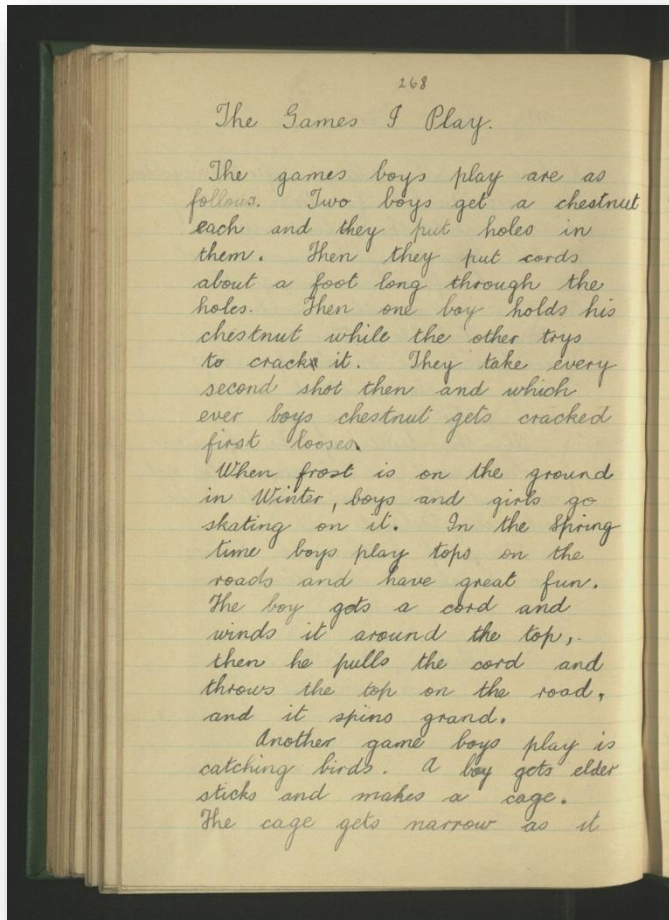 268
The Games I Play.
The games boys play are as
follows. Two boys get a chestnut
each and they put holes in
them. Then they put cords
about a foot long through the
holes. Then one boy holds his
chestnut while the other trys
to crack it. They take every
second shot then and which
ever boys chestnut gets cracked
first looses.
When frost is on the ground
in Winter, boys and girls go
skating on it. In the Spring
time boys play tops on the
roads and have great fun.
The boy gets a cord and
winds it around the top,
then he pulls the cord and
throws the top on the road,
and it spins grand.
Another game boys play is
catching birds. A boy gets elder
sticks and makes a cage.
The cage gets narrow as it